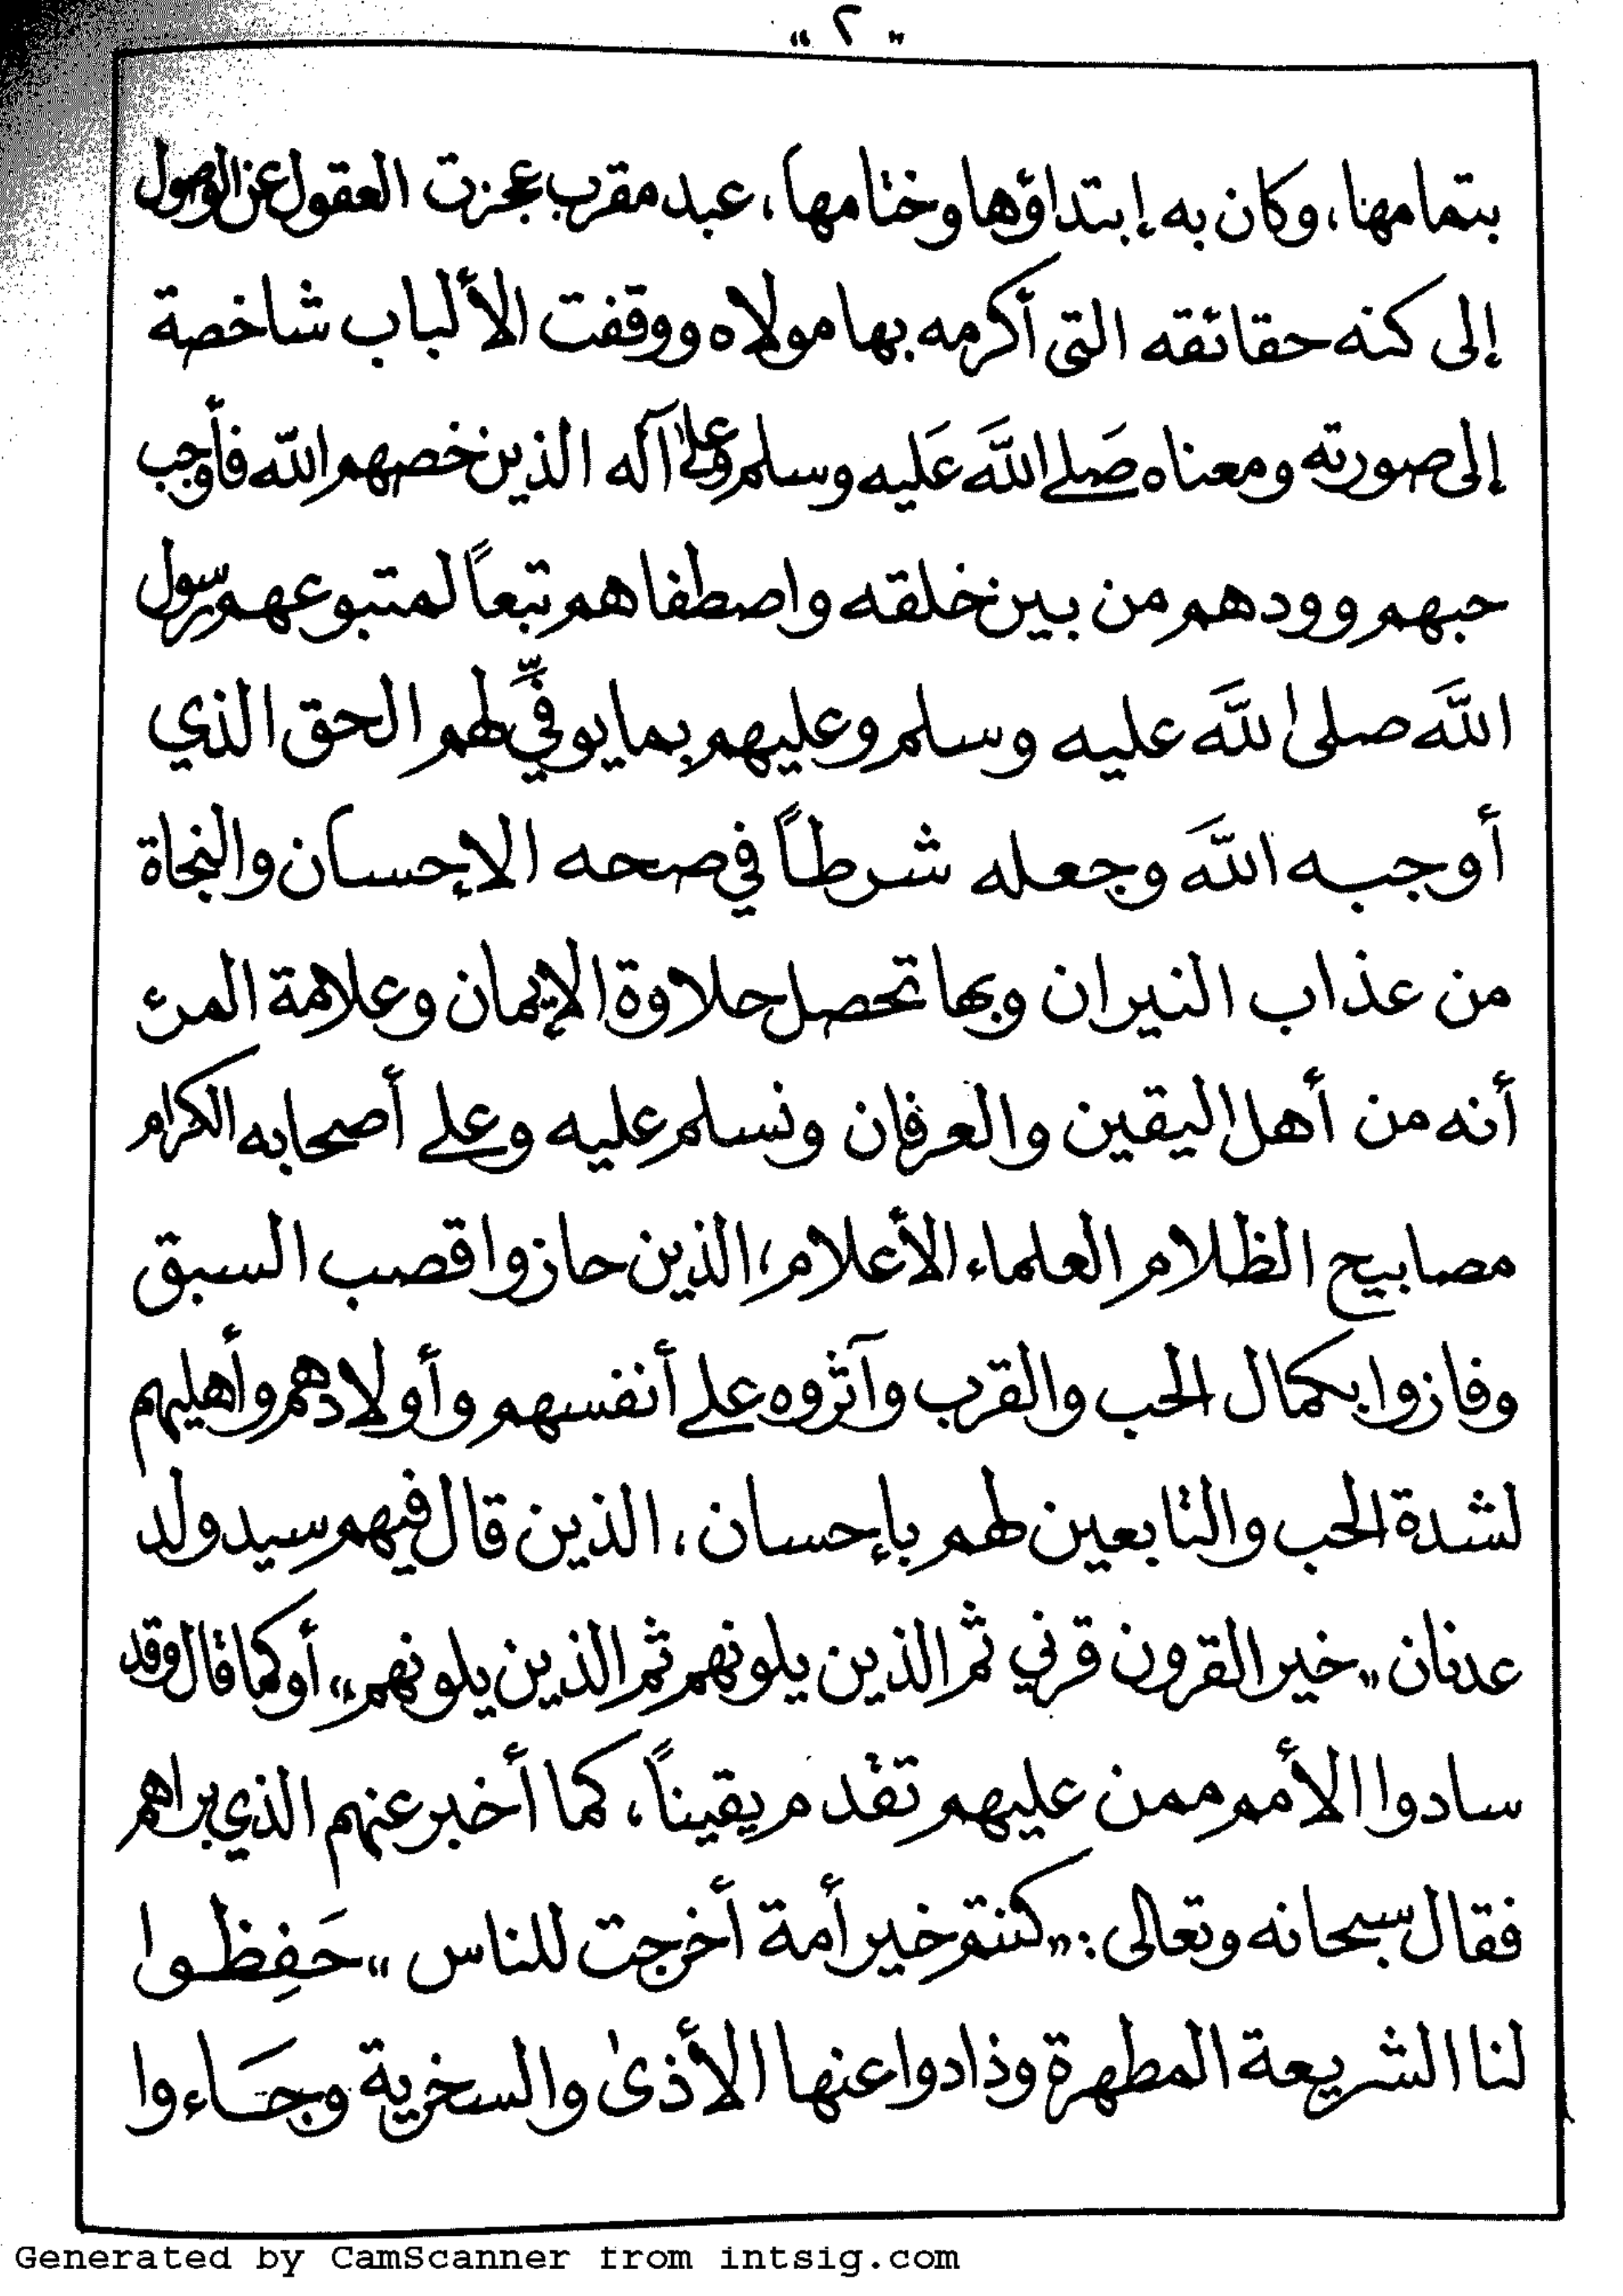 " ٢ "
بتمامها، وكان به إبتداؤها وختامها، عبد مقرب عجزت العقول عن الوصول
إلى كنه حقائقه التى أكرمه بها مولاه ووقفت الألباب شاخصة
إلى صورته ومعناه صَلى اللَّه عَليه وسلم وعلى آله الذين خصهم اللّه فأوجب
حبهم وودهم من بين خلقه واصطفاهم تبعاً لمتبوعهم رسول
اللَّه صلى اللَّه عليه وسلم وعليهم بما يوفِّي لهم الحق الذي
أوجبه اللَّه وجعله شرطاً في صحه الإحسان والنجاة
من عذاب النيران وبها تحصل حلاوة الإيمان وعلامة المرئ
أنه من أهل اليقين والعرفان ونسلم عليه وعلى أصحابه الكرام
مصابيح الظلام العلماء الأعلام، الذين حازوا قصب السبق
وفازوا بكمال الحب والقرب وآثروه على أنفسهم وأولادهم وأهليهم
لشدة الحب والتابعين لهم بإحسان، الذين قال فيهم سيد ولد
عدنان "خير القرون قرني ثم الذين يلونهم ثم الذين يلونهم"، أو كما قال وقد
سادوا الأمم ممن عليهم تقدم يقيناً، كما أخبر عنهم الذي براهم
فقال سبحانه وتعالى: "كنتم خير أمة أخرجت للناس" حَفِظوا
لنا الشريعة المطهرة وذادوا عنها الأذىٰ والسخرية وجَاءوا
Generated by CamScanner from intsig.com